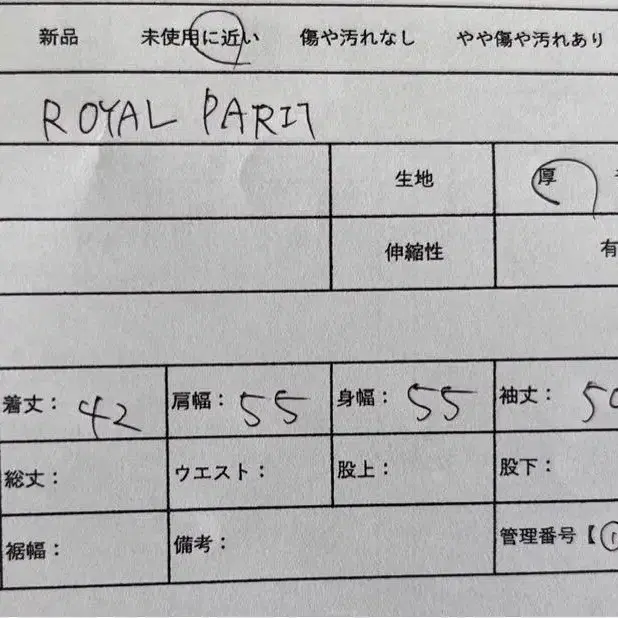 新品 未使用に近い 傷や汚れなし やや傷や汚れあり
ROYAL PARTY
生地 厚
伸縮性 有
着丈: 42 肩幅: 55 身幅: 55 袖丈: 50
総丈: ウエスト: 股上: 股下:
裾幅: 備考: 管理番号【①